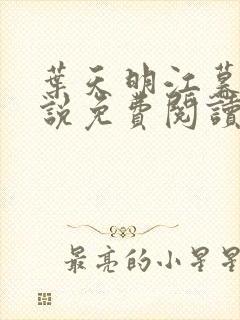 葉天明江幕
說免費閱讀
最亮的小星星